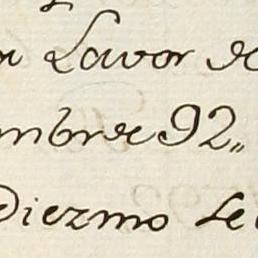 a Lavor de
mbre 92„
Diezmo Le